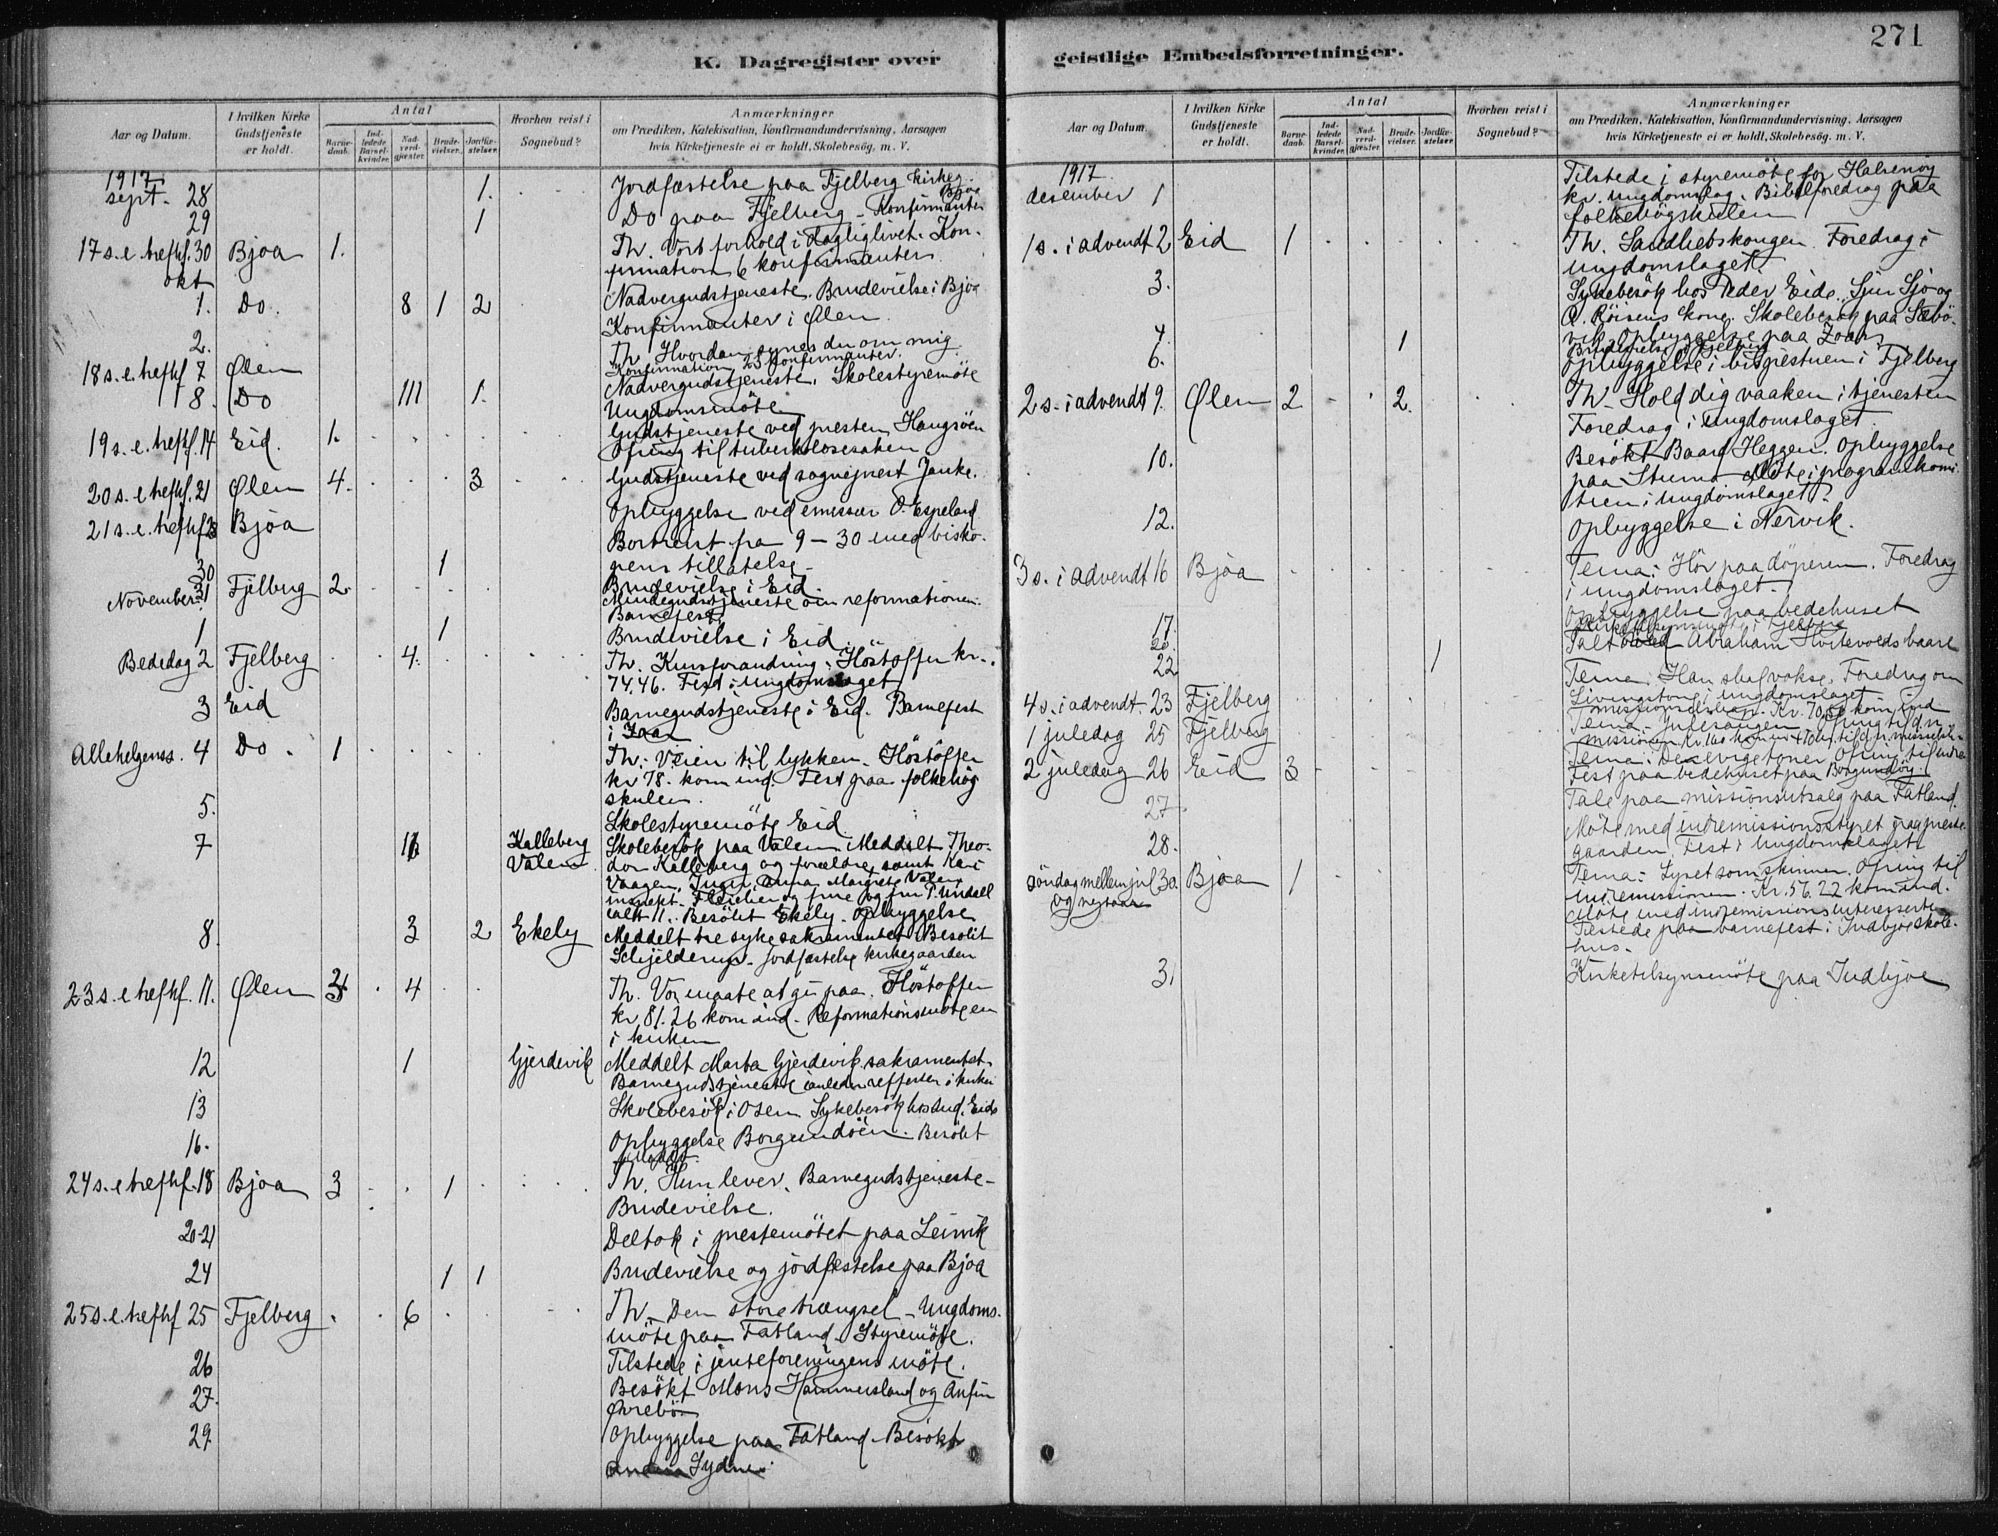 271
K. Dagregister over geistlige Embedsforretninger.
Aar og Datum.
I hvilken Kirke Gudstjeneste er holdt.
Antal
Barnedaab.
Indledede Barselkvinder.
Nadverdgjester.
Brudevielser.
Jordfæstelser.
Hvorhen reist i Sognebud?
Anmærkninger
om Prædiken, Katekisation, Konfirmandundervisning, Aarsagen
hvis Kirketjeneste ei er holdt, Skolebesøg, m. V.
1917
sept. 28 1. Jordfæstelse paa Fjelberg kirkeg.
29 1 Do paa Fjelberg - Konfirmanter Bjoa
17 s. e. trefhf. 30 Bjoa 1. Th. Vort forhold i dagliglivet. Kon-
firmation 6 konfirmanter
okt
1. Do. 8 1 2 Nadvergudstjeneste. Brudevielse i Bjoa
2. Konfirmanter i Ølen
18 s. e. trefhf 7 Ølen Th. Hvordan synes du om mig
Konfirmation 23 konfirmanter.
8. Do 111 1. Nadvergudstjeneste. Skolestyremöte
Ungdomsmöte
19 s. e. trefhf. 14 Eid. 1. Gudstjeneste ved presten Haugsöen
Ofring til tuberkulosesaken
20 s. e. trefhf. 21 Ølen 4. 3 Gudstjeneste ved sogneprest Janke.
21 s. e. trefhf 28 Bjoa Opbyggelse ved emissær O. Espeland
Bortreist fra 9 - 30 med bisko-
pens tillatelse
30 1 Brudevielse i Eid.
31 Fjelberg 2. Mindegudstjeneste om reformationen.
Barnefest
November
1 1 Brudevielse i Eid
Bededag 2 Fjelberg 4. Th. Kursforandring. Höstoffer kr.
74.46. Fest i ungdomslaget
3 Eid Barnegudstjeneste i Eid. Barnefest
i
Allehelgenss. 4 Do. 1 Th. Veien til lykken. Höstoffer
kr 78. kom ind. Fest paa folkehög
skulen.
5. Skolestyremöte Eid
7 11 Kalleberg Valen Skolebesök paa Valen. Meddelt Theo-
dor Kalleberg og forældre samt Kari
Vaagen, Inger, Anna, Margrete Valen
og frue og fru T. Undall
ialt 11. Besökt Ekely. Opbyggelse
8. 3 2 Ekely Meddelt tre syke sakramentet. Besökt
Schjelderup. Jordfæstelse kirkegaarden
23 s. e. trefhf. 11. Ølen 3 4 Th. Vor maate at gi paa. Höstoffer
kr 81.26 kom ind. Reformationsmöte en
i kirken
12 1 Gjerdevik Meddelt Marta Gjerdevik sakramentet.
Barnegudstjeneste i kirken
13 Skolebesök i Osen Sykebesök hos And. Eide
16. Opbyggelse Borgundöen. Besökt
24 s. e. trefhf. 18 Bjoa 3 1 Th. Hun lever. Barnegudstjeneste
Brudevielse.
20-21 Deltok i prestemötet paa Leirvik
24 1 1 Brudevielse og jordfæstelse paa Bjoa
25 s. e. trefhf 25 Fjelberg 6 Th. Den store trængsel - Ungdoms-
möte paa Fatland. Styremöte.
26 Tilstede i jenteforeningens möte.
27. Besökt Mons Hammersland og Anfin
Øvrebö
29. Opbyggelse paa Fatland. Besökt
Sydnes
Aar og Datum.
I hvilken Kirke Gudstjeneste er holdt.
Antal
Barnedaab.
Indledede Barselkvinder.
Nadverdgjester.
Brudevielser.
Jordfæstelser.
Hvorhen reist i Sognebud?
Anmærkninger
om Prædiken, Katekisation, Konfirmandundervisning, Aarsagen
hvis Kirketjeneste ei er holdt, Skolebesøg, m. V.
1917.
desember 1 Tilstede i styremöte for Halsenöy
kr. ungdomslag. Bibelforedrag paa
folkehögskulen
1 s. i advendt 2 Eid 1 Th. Sandhetskongen. Foredrag i
ungdomslaget
3. Sykebesök hos Peder Eide. Sjur Sjo og
O. Röisens kone. Skolebesök paa Sæbö-
vik. Opbyggelse paa
7. 1 Brudevielse i Fjelberg
6. Opbyggelse i bispestuen i Fjelberg
2 s. i advendt 9. Ølen 2 2. Th. Hold dig vaaken i tjenesten
Foredrag i ungdomslaget
10. Besökt Baard Heggen. Opbyggelse
paa Möte i programkomi-
tien i ungdomslaget.
12. Opbyggelse i Nervik.
3 s. i advendt 16 Bjoa Tema: Hör paa döperen. Foredrag
i ungdomslaget.
17. Opbyggelse paa bedehuset
20. i Fjelberg
22 1 Talt ved Abraham Hvitevolds baare
4 s. i advendt 23 Fjelberg Tema: Han skal vokse. Foredrag om
Livingstone i ungdomslaget
1 juledag 25 Fjelberg Tema. Julesangen. Ofring til
missionen
2 juledag 26 Eid 3 Tema: De evige toner. Ofring til indre
Fest paa bedehuset paa Borgundöy.
27 Tale paa missionsutsalg paa Fatland.
28. Möte med indremissionsstyret paa preste-
gaarden. Fest i ungdomslaget
söndag mellem jul 30. Bjoa 1 Tema: Lyset som skinner. Ofring til
og nytaar indremissionen. Kr. 56.22 kom ind.
Möte med indremissionsinteresserte
Tilstede paa barnefest i Indbjoe skole-
hus.
31 Kirketilsynsmöte paa Indbjoe